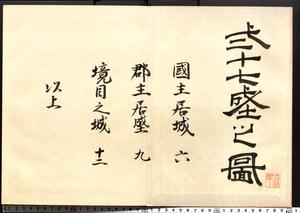 弐十七城之圖
國主居城 六
郡主居城 九
境目之城 十二
以上